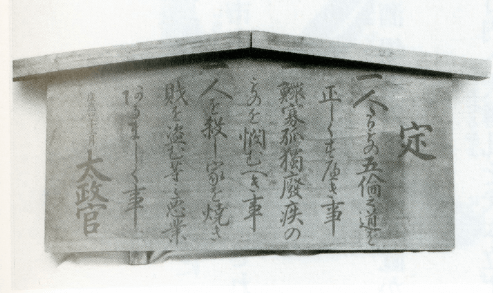 定
一人たるもの五倫之道を
正しくすへき事
鰥寡孤獨廢疾の
ものを憫むへき事
一人を殺し家を焼き
財を盗む等之悪業
あるましく事
太政官